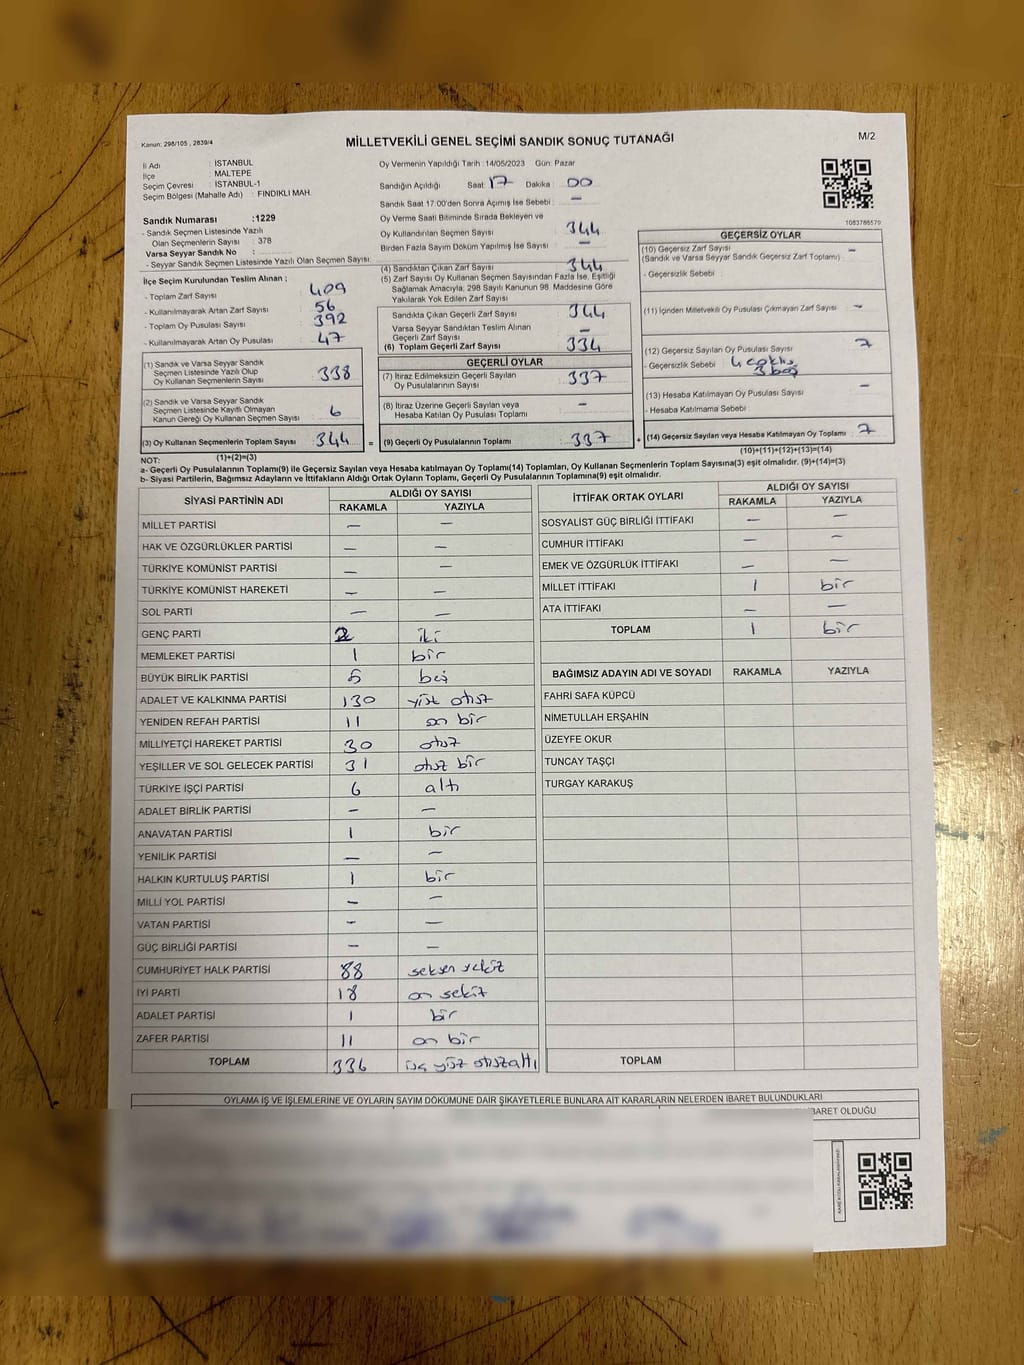 Kanun: 298/105 , 2839/4
MİLLETVEKİLİ GENEL SEÇİMİ SANDIK SONUÇ TUTANAĞI
M/2
İl Adı : İSTANBUL
İlçe : MALTEPE
Seçim Çevresi : İSTANBUL-1
Seçim Bölgesi (Mahalle Adı) : FINDIKLI MAH.
Sandık Numarası :1229
- Sandık Seçmen Listesinde Yazılı
Olan Seçmenlerin Sayısı : 378
Varsa Seyyar Sandık No :
- Seyyar Sandık Seçmen Listesinde Yazılı Olan Seçmen Sayısı:
İlçe Seçim Kurulundan Teslim Alınan ;
- Toplam Zarf Sayısı : 409
- Kullanılmayarak Artan Zarf Sayısı : 56
- Toplam Oy Pusulası Sayısı : 392
- Kullanılmayarak Artan Oy Pusulası : 47
(1) Sandık ve Varsa Seyyar Sandık
Seçmen Listesinde Yazılı Olup
Oy Kullanan Seçmenlerin Sayısı 338
(2) Sandık ve Varsa Seyyar Sandık
Seçmen Listesinde Kayıtlı Olmayan
Kanun Gereği Oy Kullanan Seçmen Sayısı 6
(3) Oy Kullanan Seçmenlerin Toplam Sayısı 344 =
(1)+(2)=(3)
Oy Vermenin Yapıldığı Tarih :14/05/2023 Gün: Pazar
Sandığın Açıldığı Saat: 17 Dakika : 00
Sandık Saat 17:00'den Sonra Açılmış İse Sebebi : -
Oy Verme Saati Bitiminde Sırada Bekleyen ve
Oy Kullandırılan Seçmen Sayısı : 344
Birden Fazla Sayım Döküm Yapılmış İse Sayısı : -
(4) Sandıktan Çıkan Zarf Sayısı : 344
(5) Zarf Sayısı Oy Kullanan Seçmen Sayısından Fazla İse, Eşitliği
Sağlamak Amacıyla, 298 Sayılı Kanunun 98. Maddesine Göre
Yakılarak Yok Edilen Zarf Sayısı :
Sandıkta Çıkan Geçerli Zarf Sayısı : 344
Varsa Seyyar Sandıktan Teslim Alınan
Geçerli Zarf Sayısı : -
(6) Toplam Geçerli Zarf Sayısı : 334
GEÇERLİ OYLAR
(7) İtiraz Edilmeksizin Geçerli Sayılan
Oy Pusulalarının Sayısı : 337
(8) İtiraz Üzerine Geçerli Sayılan veya
Hesaba Katılan Oy Pusulası Toplamı : -
(9) Geçerli Oy Pusulalarının Toplamı : 337 +
1083786570
GEÇERSİZ OYLAR
(10) Geçersiz Zarf Sayısı : -
(Sandık ve Varsa Seyyar Sandık Geçersiz Zarf Toplamı)
- Geçersizlik Sebebi :
(11) İçinden Milletvekili Oy Pusulası Çıkmayan Zarf Sayısı : -
(12) Geçersiz Sayılan Oy Pusulası Sayısı : 7
- Geçersizlik Sebebi : 4
3 boş
(13) Hesaba Katılmayan Oy Pusulası Sayısı : -
- Hesaba Katılmama Sebebi :
(14) Geçersiz Sayılan veya Hesaba Katılmayan Oy Toplamı : 7
(10)+(11)+(12)+(13)=(14)
NOT:
a- Geçerli Oy Pusulalarının Toplamı(9) ile Geçersiz Sayılan veya Hesaba katılmayan Oy Toplamı(14) Toplamları, Oy Kullanan Seçmenlerin Toplam Sayısına(3) eşit olmalıdır. (9)+(14)=(3)
b- Siyasi Partilerin, Bağımsız Adayların ve İttifakların Aldığı Ortak Oyların Toplamı, Geçerli Oy Pusulalarının Toplamına(9) eşit olmalıdır.
SİYASİ PARTİNİN ADI
ALDIĞI OY SAYISI
RAKAMLA YAZIYLA
MİLLET PARTİSİ - -
HAK VE ÖZGÜRLÜKLER PARTİSİ - -
TÜRKİYE KOMÜNİST PARTİSİ - -
TÜRKİYE KOMÜNİST HAREKETİ - -
SOL PARTİ - -
GENÇ PARTİ 2 iki
MEMLEKET PARTİSİ 1 bir
BÜYÜK BİRLİK PARTİSİ 5 beş
ADALET VE KALKINMA PARTİSİ 130 yüz otuz
YENİDEN REFAH PARTİSİ 11 on bir
MİLLİYETÇİ HAREKET PARTİSİ 30 otuz
YEŞİLLER VE SOL GELECEK PARTİSİ 31 otuz bir
TÜRKİYE İŞÇİ PARTİSİ 6 altı
ADALET BİRLİK PARTİSİ - -
ANAVATAN PARTİSİ 1 bir
YENİLİK PARTİSİ - -
HALKIN KURTULUŞ PARTİSİ 1 bir
MİLLİ YOL PARTİSİ - -
VATAN PARTİSİ - -
GÜÇ BİRLİĞİ PARTİSİ - -
CUMHURİYET HALK PARTİSİ 88 seksen sekiz
İYİ PARTİ 18 on sekiz
ADALET PARTİSİ 1 bir
ZAFER PARTİSİ 11 on bir
TOPLAM 336 üç yüz otuzaltı
İTTİFAK ORTAK OYLARI
ALDIĞI OY SAYISI
RAKAMLA YAZIYLA
SOSYALİST GÜÇ BİRLİĞİ İTTİFAKI - -
CUMHUR İTTİFAKI - -
EMEK VE ÖZGÜRLÜK İTTİFAKI - -
MİLLET İTTİFAKI 1 bir
ATA İTTİFAKI - -
TOPLAM 1 bir
BAĞIMSIZ ADAYIN ADI VE SOYADI RAKAMLA YAZIYLA
FAHRİ SAFA KÜPCÜ
NİMETULLAH ERŞAHİN
ÜZEYFE OKUR
TUNCAY TAŞÇI
TURGAY KARAKUŞ
TOPLAM
OYLAMA İŞ VE İŞLEMLERİNE VE OYLARIN SAYIM DÖKÜMÜNE DAİR ŞİKAYETLERLE BUNLARA AİT KARARLARIN NELERDEN İBARET BULUNDUKLARI
İBARET OLDUĞU